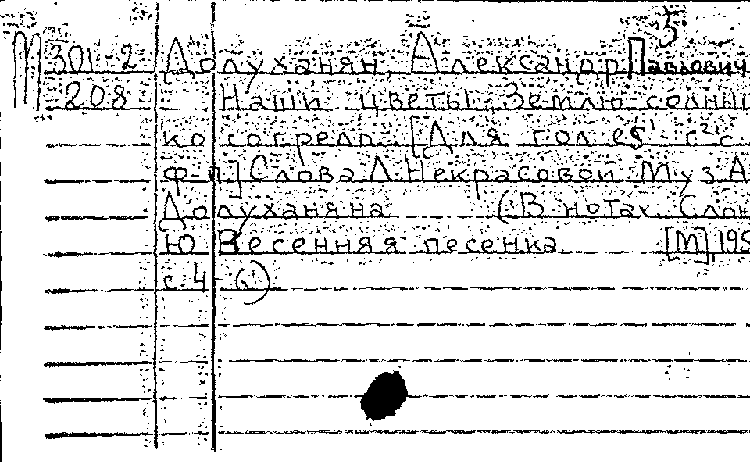 5
М 301-2 Долуханян, Александр Павлович
208 Наши цветы. Землю солныш
ко согрело. [Для гол es¹-c² с
ф-п.] Слова Л. Некрасовой Муз А
Долуханяна (В нотах. Слон
Ю Весенняя песенка [М], 195
с. 4-6)